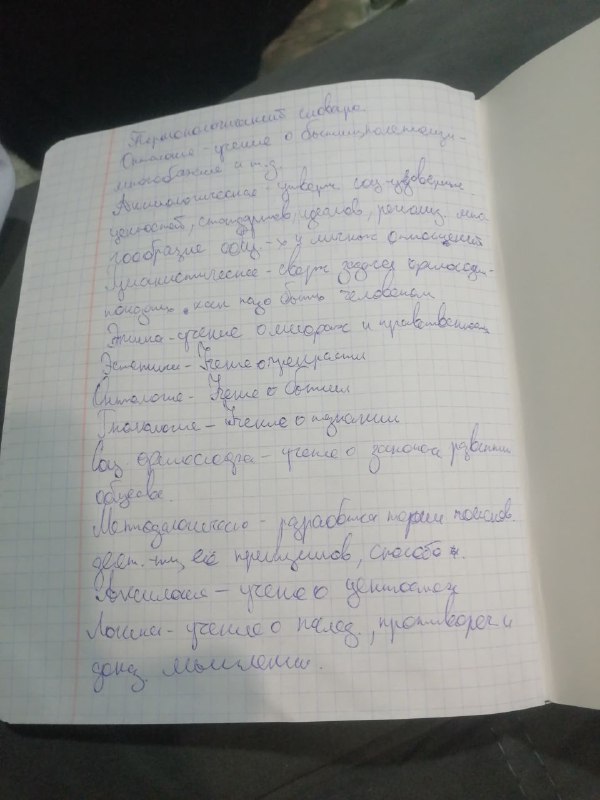 Терминологический словарь.
Онтология - учение о бытии,
многобожие и т.д.
Аксиологическая - утверж. соц-
ценностей, стандартов, идеалов, мно
гообразие общ.-х у личных отношений
Гуманистическая - сверх задача философии-
показать, как надо быть человеком
Этика - учение о морали и нравственности
Эстетика - Учение о прекрасном
Онтология - Учение о бытии
Гносеология - Учение о познании
Соц философия - учение о законах развития
общества.
Методология - разработка теории человеч.
деят.-ти, её принципов, способов.
Аксиология - учение о ценностях
Логика - учение о , противореч и
мышлении.